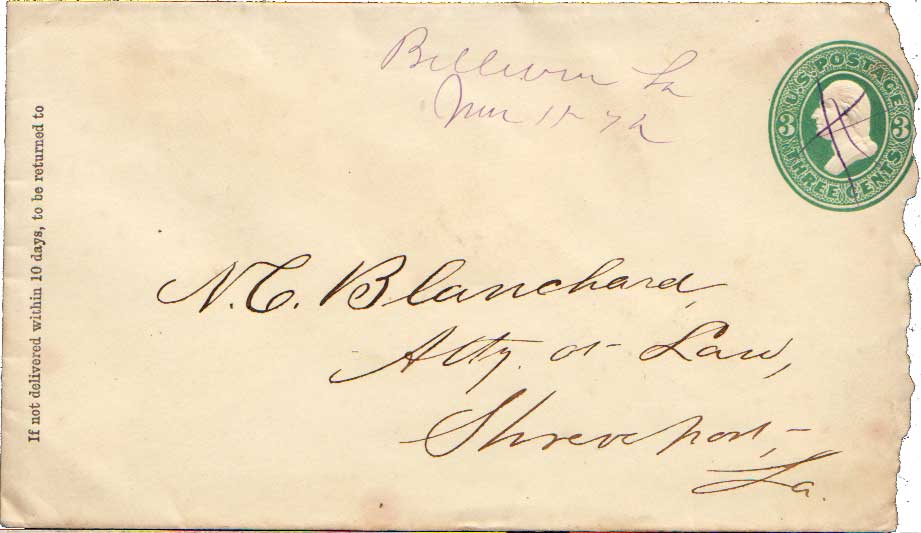 La
U.S. POSTAGE
3 3
THREE CENTS
If not delivered within 10 days, to be returned to
N.C. Blanchard,
Atty. at Law,
Shreveport,
La.